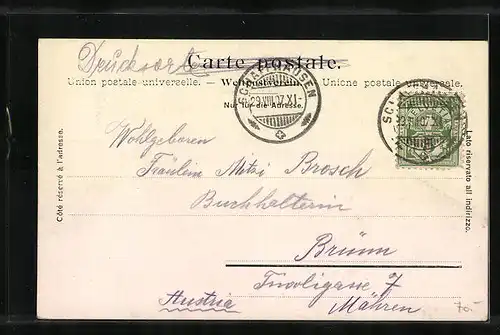 Drucksorte
Carte postale.
Union postale universelle. — Weltpostverein. — Unione postale universale.
Nur für die Adresse.
SCHAFFHAUSEN
29.VIII.07.XI-
Côté réservé à l'adresse.
Lato riservato all indirizzo.
Wohlgeboren
Fräulein Mitzi Brosch
Buchhalterin
Brünn
7
Austria
Mähren
70.-